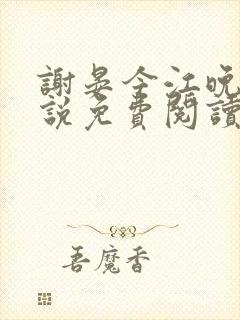 謝晏今江晚
説免費閱讀
吾魔香